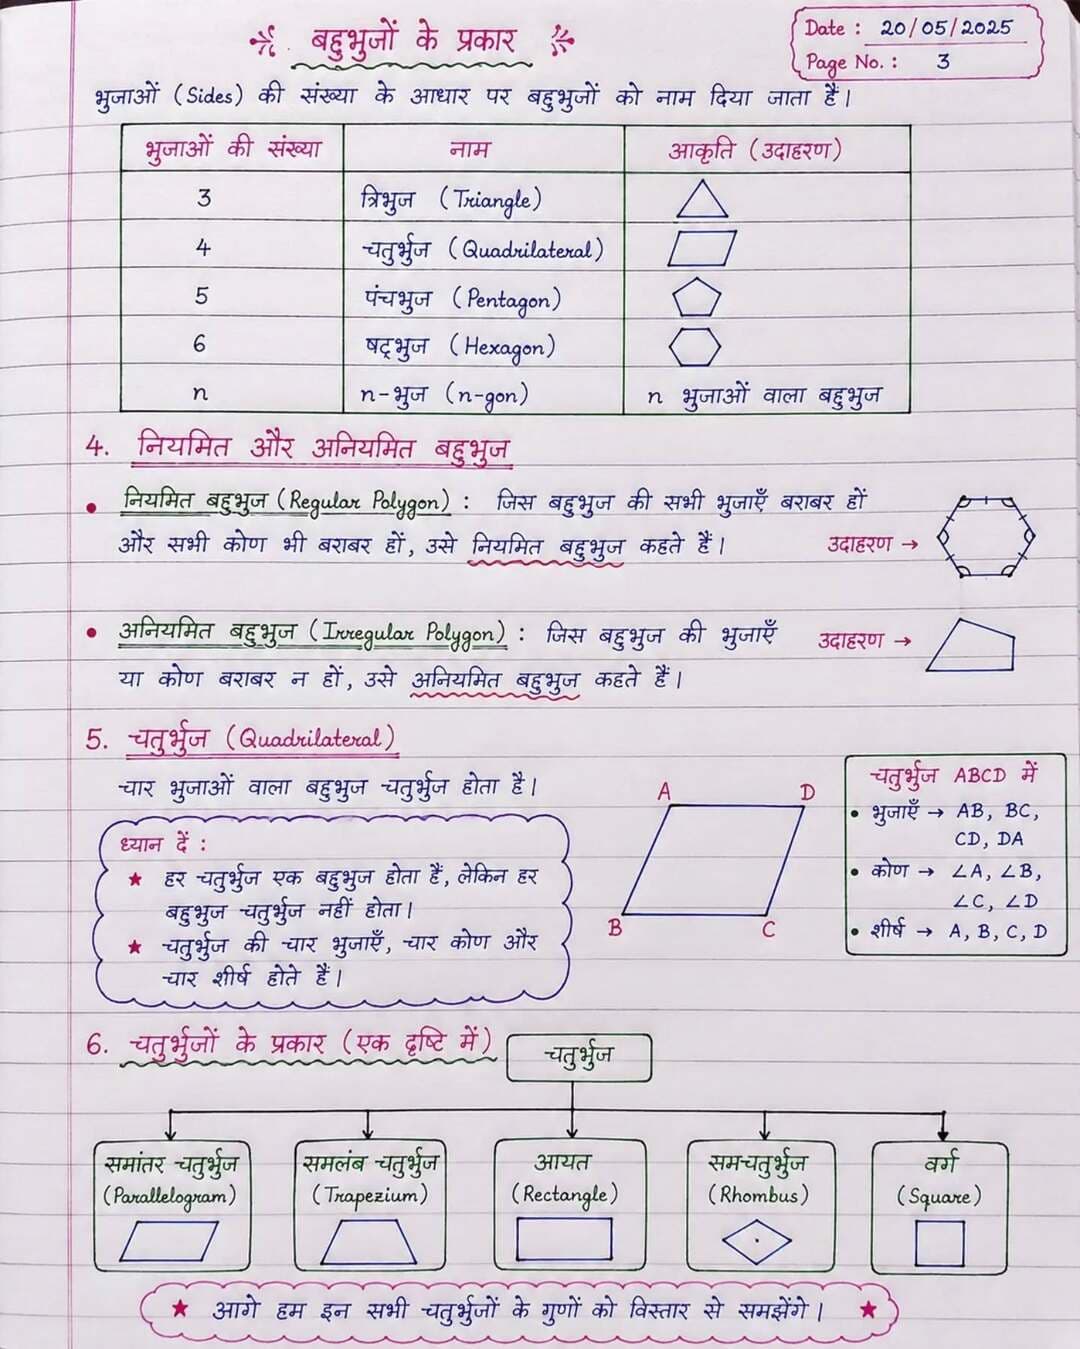 बहुभुजों के प्रकार
Date : 20/05/2025
Page No. : 3
भुजाओं (Sides) की संख्या के आधार पर बहुभुजों को नाम दिया जाता है।
भुजाओं की संख्या नाम आकृति (उदाहरण)
3 त्रिभुज (Triangle)
4 चतुर्भुज (Quadrilateral)
5 पंचभुज (Pentagon)
6 षट्भुज (Hexagon)
n n-भुज (n-gon) n भुजाओं वाला बहुभुज
4. नियमित और अनियमित बहुभुज
• नियमित बहुभुज (Regular Polygon) : जिस बहुभुज की सभी भुजाएँ बराबर हों
और सभी कोण भी बराबर हों, उसे नियमित बहुभुज कहते हैं। उदाहरण →
• अनियमित बहुभुज (Irregular Polygon) : जिस बहुभुज की भुजाएँ उदाहरण →
या कोण बराबर न हों, उसे अनियमित बहुभुज कहते हैं।
5. चतुर्भुज (Quadrilateral)
चार भुजाओं वाला बहुभुज चतुर्भुज होता है।
ध्यान दें :
★ हर चतुर्भुज एक बहुभुज होता है, लेकिन हर
बहुभुज चतुर्भुज नहीं होता।
★ चतुर्भुज की चार भुजाएँ, चार कोण और
चार शीर्ष होते हैं।
A D
B C
चतुर्भुज ABCD में
• भुजाएँ → AB, BC,
CD, DA
• कोण → ∠A, ∠B,
∠C, ∠D
• शीर्ष → A, B, C, D
6. चतुर्भुजों के प्रकार (एक दृष्टि में)
चतुर्भुज
समांतर चतुर्भुज
(Parallelogram)
समलंब चतुर्भुज
(Trapezium)
आयत
(Rectangle)
समचतुर्भुज
(Rhombus)
वर्ग
(Square)
★ आगे हम इन सभी चतुर्भुजों के गुणों को विस्तार से समझेंगे। ★